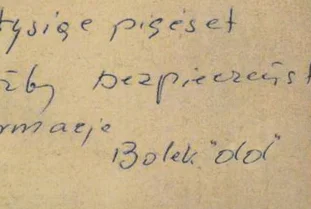 tysiąc pięćset
żby bezpieczeńst
rmacje
Bolek "dd"